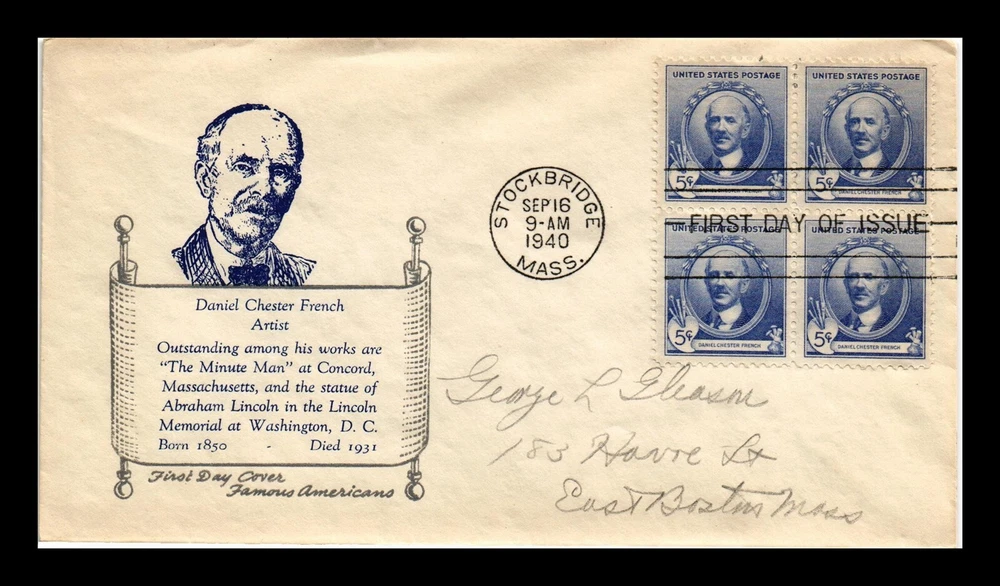 Daniel Chester French
Artist
Outstanding among his works are
"The Minute Man" at Concord,
Massachusetts, and the statue of
Abraham Lincoln in the Lincoln
Memorial at Washington, D. C.
Born 1850 - Died 1931
First Day Cover
Famous Americans
STOCKBRIDGE
SEP 16
9-AM
1940
MASS.
UNITED STATES POSTAGE
5¢
UNITED STATES POSTAGE
5¢
DANIEL CHESTER FRENCH
FIRST DAY OF ISSUE
UNITED STATES POSTAGE
5¢
DANIEL CHESTER FRENCH
UNITED STATES POSTAGE
5¢
DANIEL CHESTER FRENCH
George L Gleason
183 Havre St
East Boston Mass